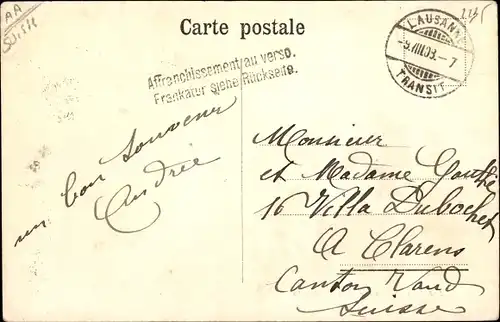 AA
Suisse
Carte postale
LAUSANNE
-5.III.09.-7
TRANSIT
Affranchissement au verso.
Frankatur siehe Rückseite.
un bon souvenir
Andrée
Monsieur
et Madame
16 Villa Dubochet
A Clarens
Canton Vaud
Suisse